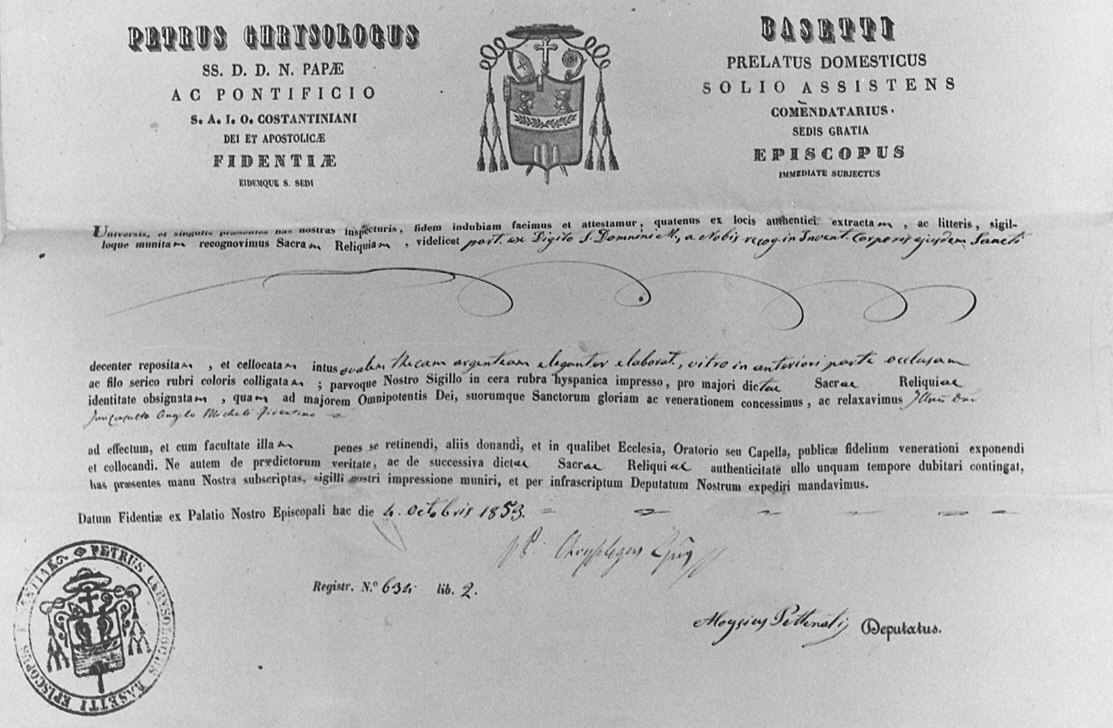 PETRUS CHRYSOLOGUS BASETTI
SS. D. D. N. PAPÆ PRELATUS DOMESTICUS
AC PONTIFICIO SOLIO ASSISTENS
S. A. I. O. COSTANTINIANI COMĒNDATARIUS.
DEI ET APOSTOLICÆ SEDIS GRATIA
FIDENTIÆ EPISCOPUS
EIDEMQUE S. SEDI IMMEDIATE SUBJECTUS
Universis, et singulis præsentes has nostras inspecturis, fidem indubiam facimus et attestamur, quatenus ex locis authentici. extractam , ac litteris, sigil-
loque munitam recognovimus Sacram Reliquiam , videlicet part. ex Digito S. Domnini M., a Nobis recog. in Invent. Corporis ejusdem Sancti
decenter repositam , et collocatam intus ovalem thecam argenteam eleganter elaborat., vitro in anteriori parte occlusam
ac filo serico rubri coloris colligatam ; parvoque Nostro Sigillo in cera rubra hyspanica impresso, pro majori dictae Sacrae Reliquiae
identitate obsignatam , quam ad majorem Omnipotentis Dei, suorumque Sanctorum gloriam ac venerationem concessimus, ac relaxavimus
Angelo Micheli Fidentino
ad effectum, et cum facultate illam penes se retinendi, aliis donandi, et in qualibet Ecclesia, Oratorio seu Capella, publicæ fidelium venerationi exponendi
et collocandi. Ne autem de prædictorum veritate, ac de successiva dictae Sacrae Reliquiae authenticitate ullo unquam tempore dubitari contingat,
has præsentes manu Nostra subscriptas, sigilli nostri impressione muniri, et per infrascriptum Deputatum Nostrum expediri mandavimus.
Datum Fidentiæ ex Palatio Nostro Episcopali hac die 4. Octobris 1853.
P. Chrysologus Epūs
Registr. N.º 634 lib. 2.
Aloysius Pettenati Deputatus.
PETRUS CHRYSOLOGUS BASETTI EPISCOPUS